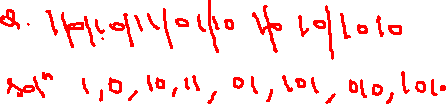 Q. 1|0|10|11|01|10 1|0 10|1010
Solⁿ 1, 0, 10, 11, 01, 101, 010, 1010